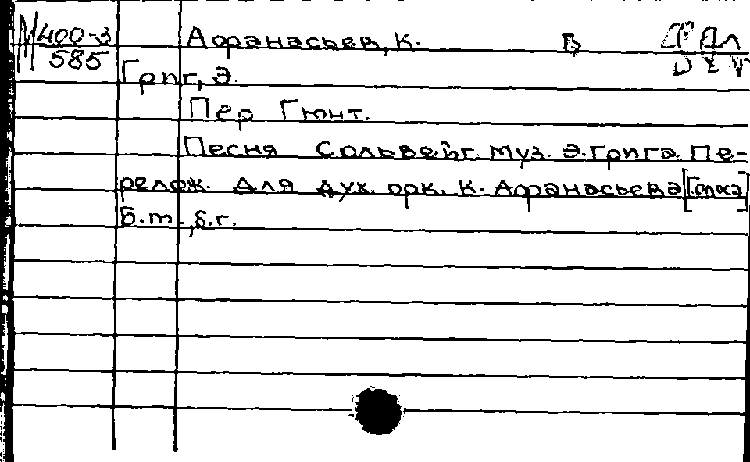 М 400-3 Афанасьев, К. В
585 Григ, Э.
Пер Гюнт.
Песня Сольвейг. Муз. Э. Грига. Пе-
релож. для дух. орк. К. Афанасьева
б.т., б.г.